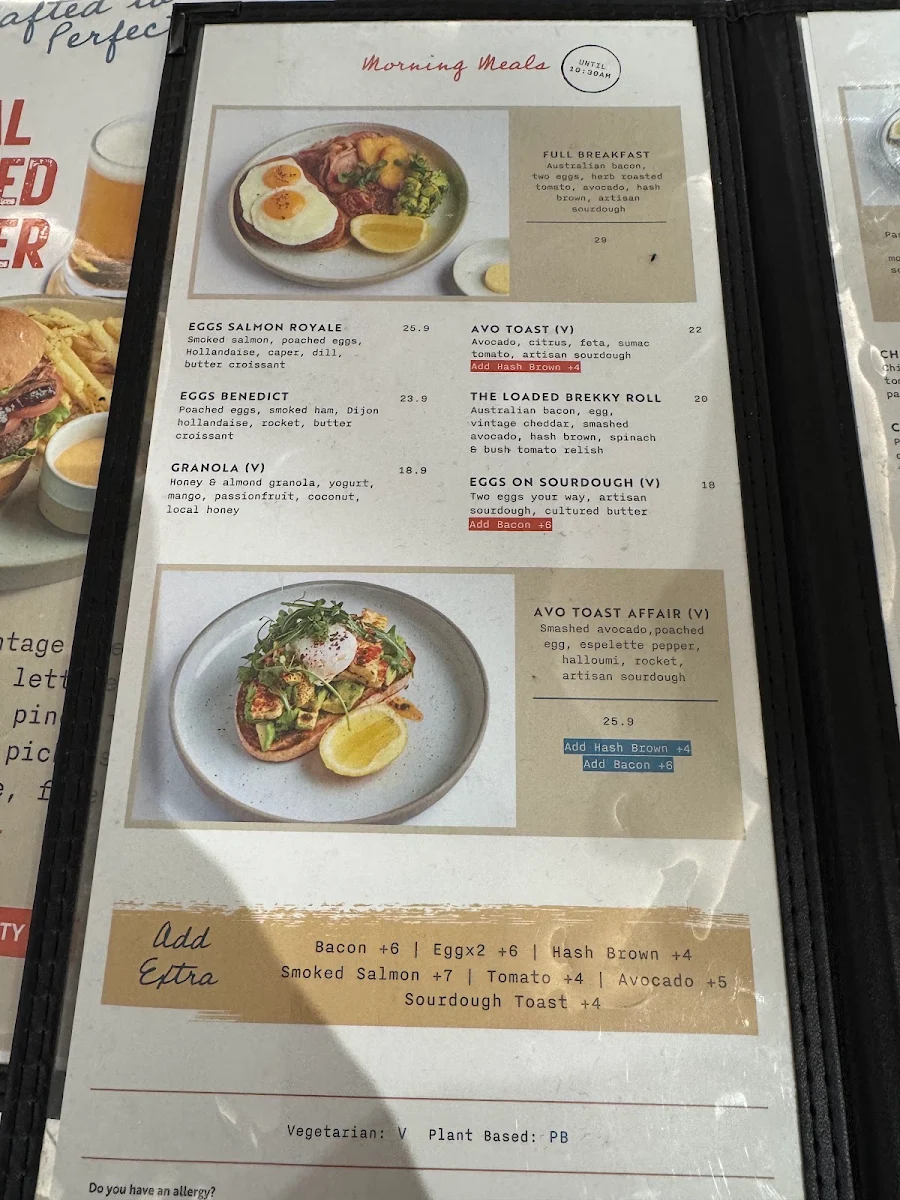 Perfec
AL
ED
ER
ntage
lett
pin
pic
TY
Morning Meals
UNTIL
10:30AM
FULL BREAKFAST
Australian bacon,
two eggs, herb roasted
tomato, avocado, hash
brown, artisan
sourdough
29
EGGS SALMON ROYALE 25.9
Smoked salmon, poached eggs,
Hollandaise, caper, dill,
butter croissant
EGGS BENEDICT 23.9
Poached eggs, smoked ham, Dijon
hollandaise, rocket, butter
croissant
GRANOLA (V) 18.9
Honey & almond granola, yogurt,
mango, passionfruit, coconut,
local honey
AVO TOAST (V) 22
Avocado, citrus, feta, sumac
tomato, artisan sourdough
Add Hash Brown +4
THE LOADED BREKKY ROLL 20
Australian bacon, egg,
vintage cheddar, smashed
avocado, hash brown, spinach
& bush tomato relish
EGGS ON SOURDOUGH (V) 18
Two eggs your way, artisan
sourdough, cultured butter
Add Bacon +6
AVO TOAST AFFAIR (V)
Smashed avocado,poached
egg, espelette pepper,
halloumi, rocket,
artisan sourdough
25.9
Add Hash Brown +4
Add Bacon +6
Add
Extra
Bacon +6 | Eggx2 +6 | Hash Brown +4
Smoked Salmon +7 | Tomato +4 | Avocado +5
Sourdough Toast +4
Vegetarian: V Plant Based: PB
Do you have an allergy?